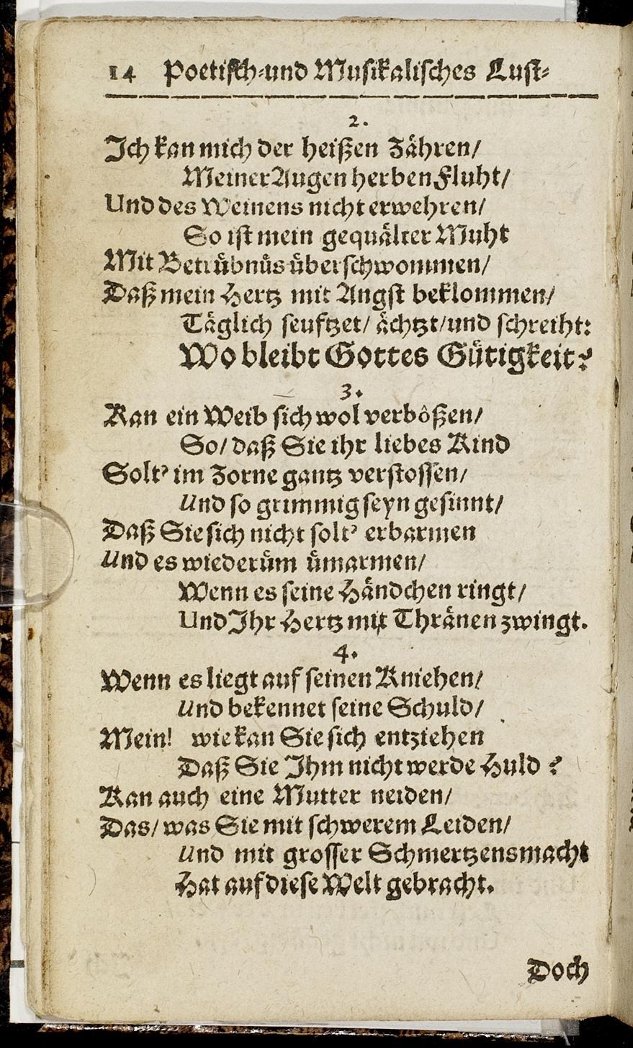 14 Poetisch-und Musikalisches Lust-
2.
Ich kan mich der heißen Zähren/
Meiner Augen herben Fluht/
Und des Weinens nicht erwehren/
So ist mein gequälter Muht
Mit Betrübnüs überschwommen/
Daß mein Hertz mit Angst beklommen/
Täglich seuftzet/ ächtzt/und schreiht:
Wo bleibt Gottes Gütigkeit?
3.
Kan ein Weib sich wol verbößen/
So/ daß Sie ihr liebes Kind
Solt' im Zorne gantz verstossen/
Und so grimmig seyn gesinnt/
Daß Sie sich nicht solt' erbarmen
Und es wiederüm ümarmen/
Wenn es seine Händchen ringt/
Und Ihr Hertz mit Thränen zwingt.
4.
Wenn es liegt auf seinen Kniehen/
Und bekennet seine Schuld/
Mein! wie kan Sie sich entziehen
Daß Sie Ihm nicht werde Huld?
Kan auch eine Mutter neiden/
Das/ was Sie mit schwerem Leiden/
Und mit grosser Schmertzensmacht
Hat auf diese Welt gebracht.
Doch